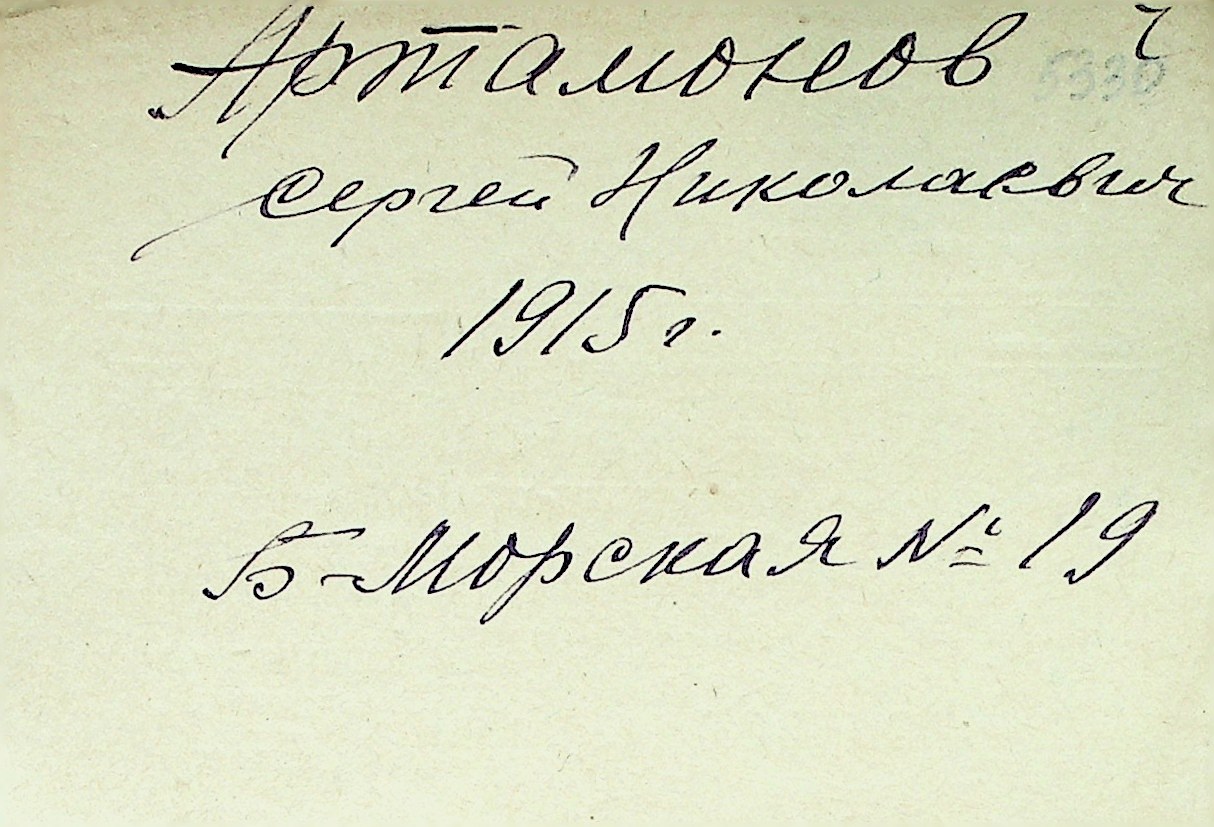 Артамонов ч
Сергей Николаевич
1915 г.
Б-Морская № 19